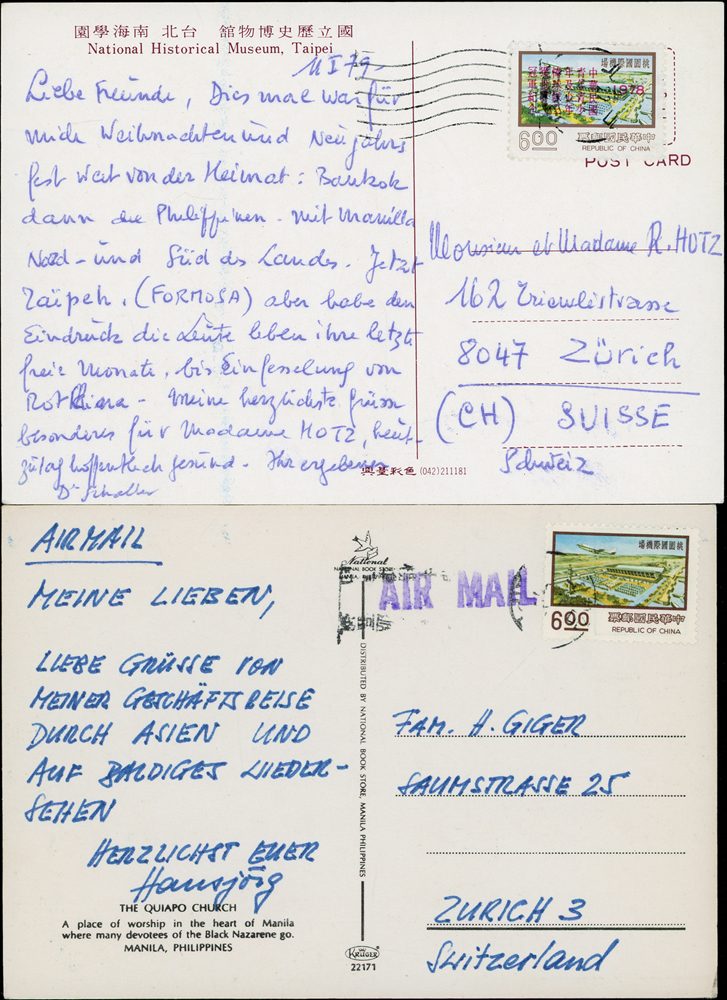 園學海南 北台 館物博史歷立國
National Historical Museum, Taipei
11 I 79
Liebe Freunde, Dies mal war für
mich Weihnachten und Neujahrs
fest weit von der Heimat: Bankok
dann die Philippinen - mit Manilla
Nord - und Süd des Landes. Jetzt
Taïpeh, (FORMOSA) aber habe den
Eindruck die Leute leben ihre letzte
freie Monate, bis Einfesselung von
Rot China - Meine herzlichste Grüsse
besonderes für Madame HOTZ, heut-
zutag hoffentlich gesund - Ihr ergebener
Dr Schaller
場機際國園桃
1978
6.00
票郵國民華中
REPUBLIC OF CHINA
POST CARD
Monsieur et Madame R. HOTZ
162 strasse
8047 Zürich
(CH) SUISSE
Schweiz
興臺彩色 (042)211181
AIRMAIL
MEINE LIEBEN,
LIEBE GRÜSSE VON
MEINER GESCHÄFTSREISE
DURCH ASIEN UND
AUF BALDIGES WIEDER-
SEHEN
HERZLICHST EUER
Hansjörg
THE QUIAPO CHURCH
A place of worship in the heart of Manila
where many devotees of the Black Nazarene go.
MANILA, PHILIPPINES
National
NATIONAL BOOK STORE
MANILA
AIR MAIL
DISTRIBUTED BY NATIONAL BOOK STORE, MANILA PHILIPPINES
KRÜGER
22171
場機際國園桃
6.00
票郵國民華中
REPUBLIC OF CHINA
FAM. H. GIGER
SAUMSTRASSE 25
ZURICH 3
Switzerland